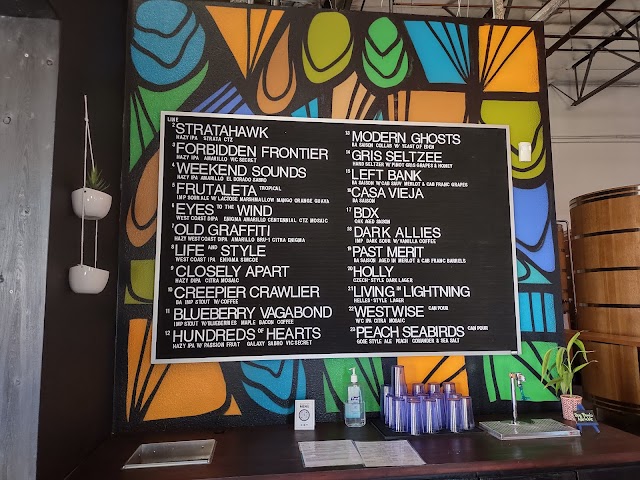 LINE
2 STRATAHAWK
HAZY IPA STRATA CTZ
3 FORBIDDEN FRONTIER
HAZY IPA AMARILLO VIC SECRET
4 WEEKEND SOUNDS
HAZY IPA AMARILLO EL DORADO
5 FRUTALETA TROPICAL
IMP SORBALE W/ LACTOSE MARSHMALLOW MANGO ORANGE GUAVA
6 EYES TO THE WIND
WEST COAST DIPA ENIGMA AMARILLO CENTENNIAL CTZ MOSAIC
7 OLD GRAFFITI
HAZY WEST COAST DIPA AMARILLO BRU-1 CITRA ENIGMA
8 LIFE AND STYLE
WEST COAST IPA ENIGMA SIMCOE
9 CLOSELY APART
HAZY DIPA CITRA MOSAIC
10 CREEPIER CRAWLIER
BA IMP STOUT W/ COFFEE
11 BLUEBERRY VAGABOND
IMP STOUT W/ BLUEBERRIES MAPLE BACON COFFEE
12 HUNDREDS OF HEARTS
HAZY IPA W/ PASSION FRUIT GALAXY SABRO VIC SECRET
13 MODERN GHOSTS
BA SAISON COLLAB W/ YEAST OF EDEN
14 GRIS SELTZEE
HARD SELTZER W/ PINOT GRIS GRAPES & HONEY
15 LEFT BANK
BA SAISON W/ CAB SAUV MERLOT & CAB FRANC GRAPES
16 CASA VIEJA
BA SAISON
17 BDX
OAK AGED SAISON
18 DARK ALLIES
IMP DARK SOUR W/ VANILLA COFFEE
19 PAST MERIT
BA SAISON AGED IN MERLOT & CAB FRANC BARRELS
20 HOLLY
CZECH-STYLE DARK LAGER
21 LIVING IN LIGHTNING
HELLES-STYLE LAGER
22 WESTWISE CAN POUR
WC IPA CITRA MOSAIC
23 PEACH SEABIRDS CAN POUR
GOSE STYLE ALE PEACH CORIANDER & SEA SALT